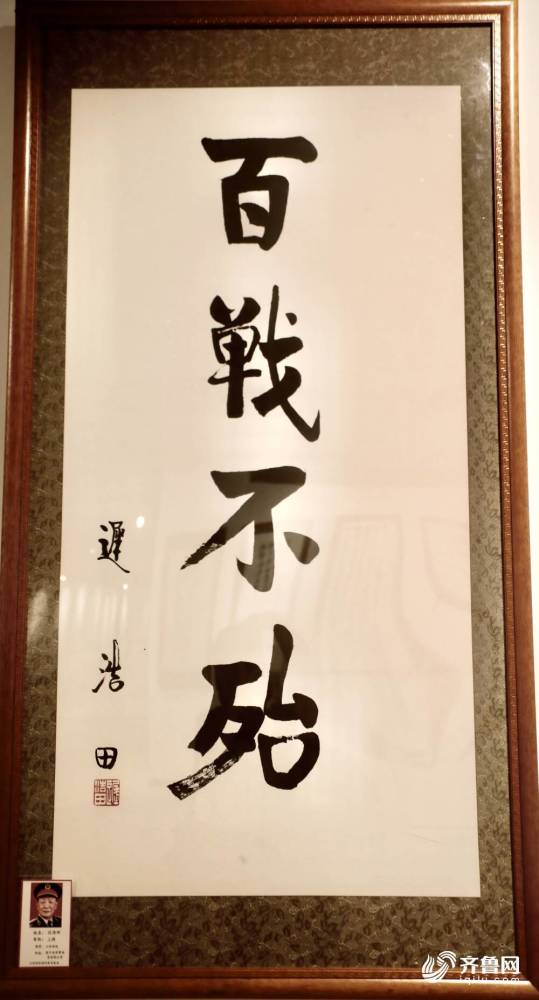 百戰不殆
遲浩田
齐鲁网
iqilu.com